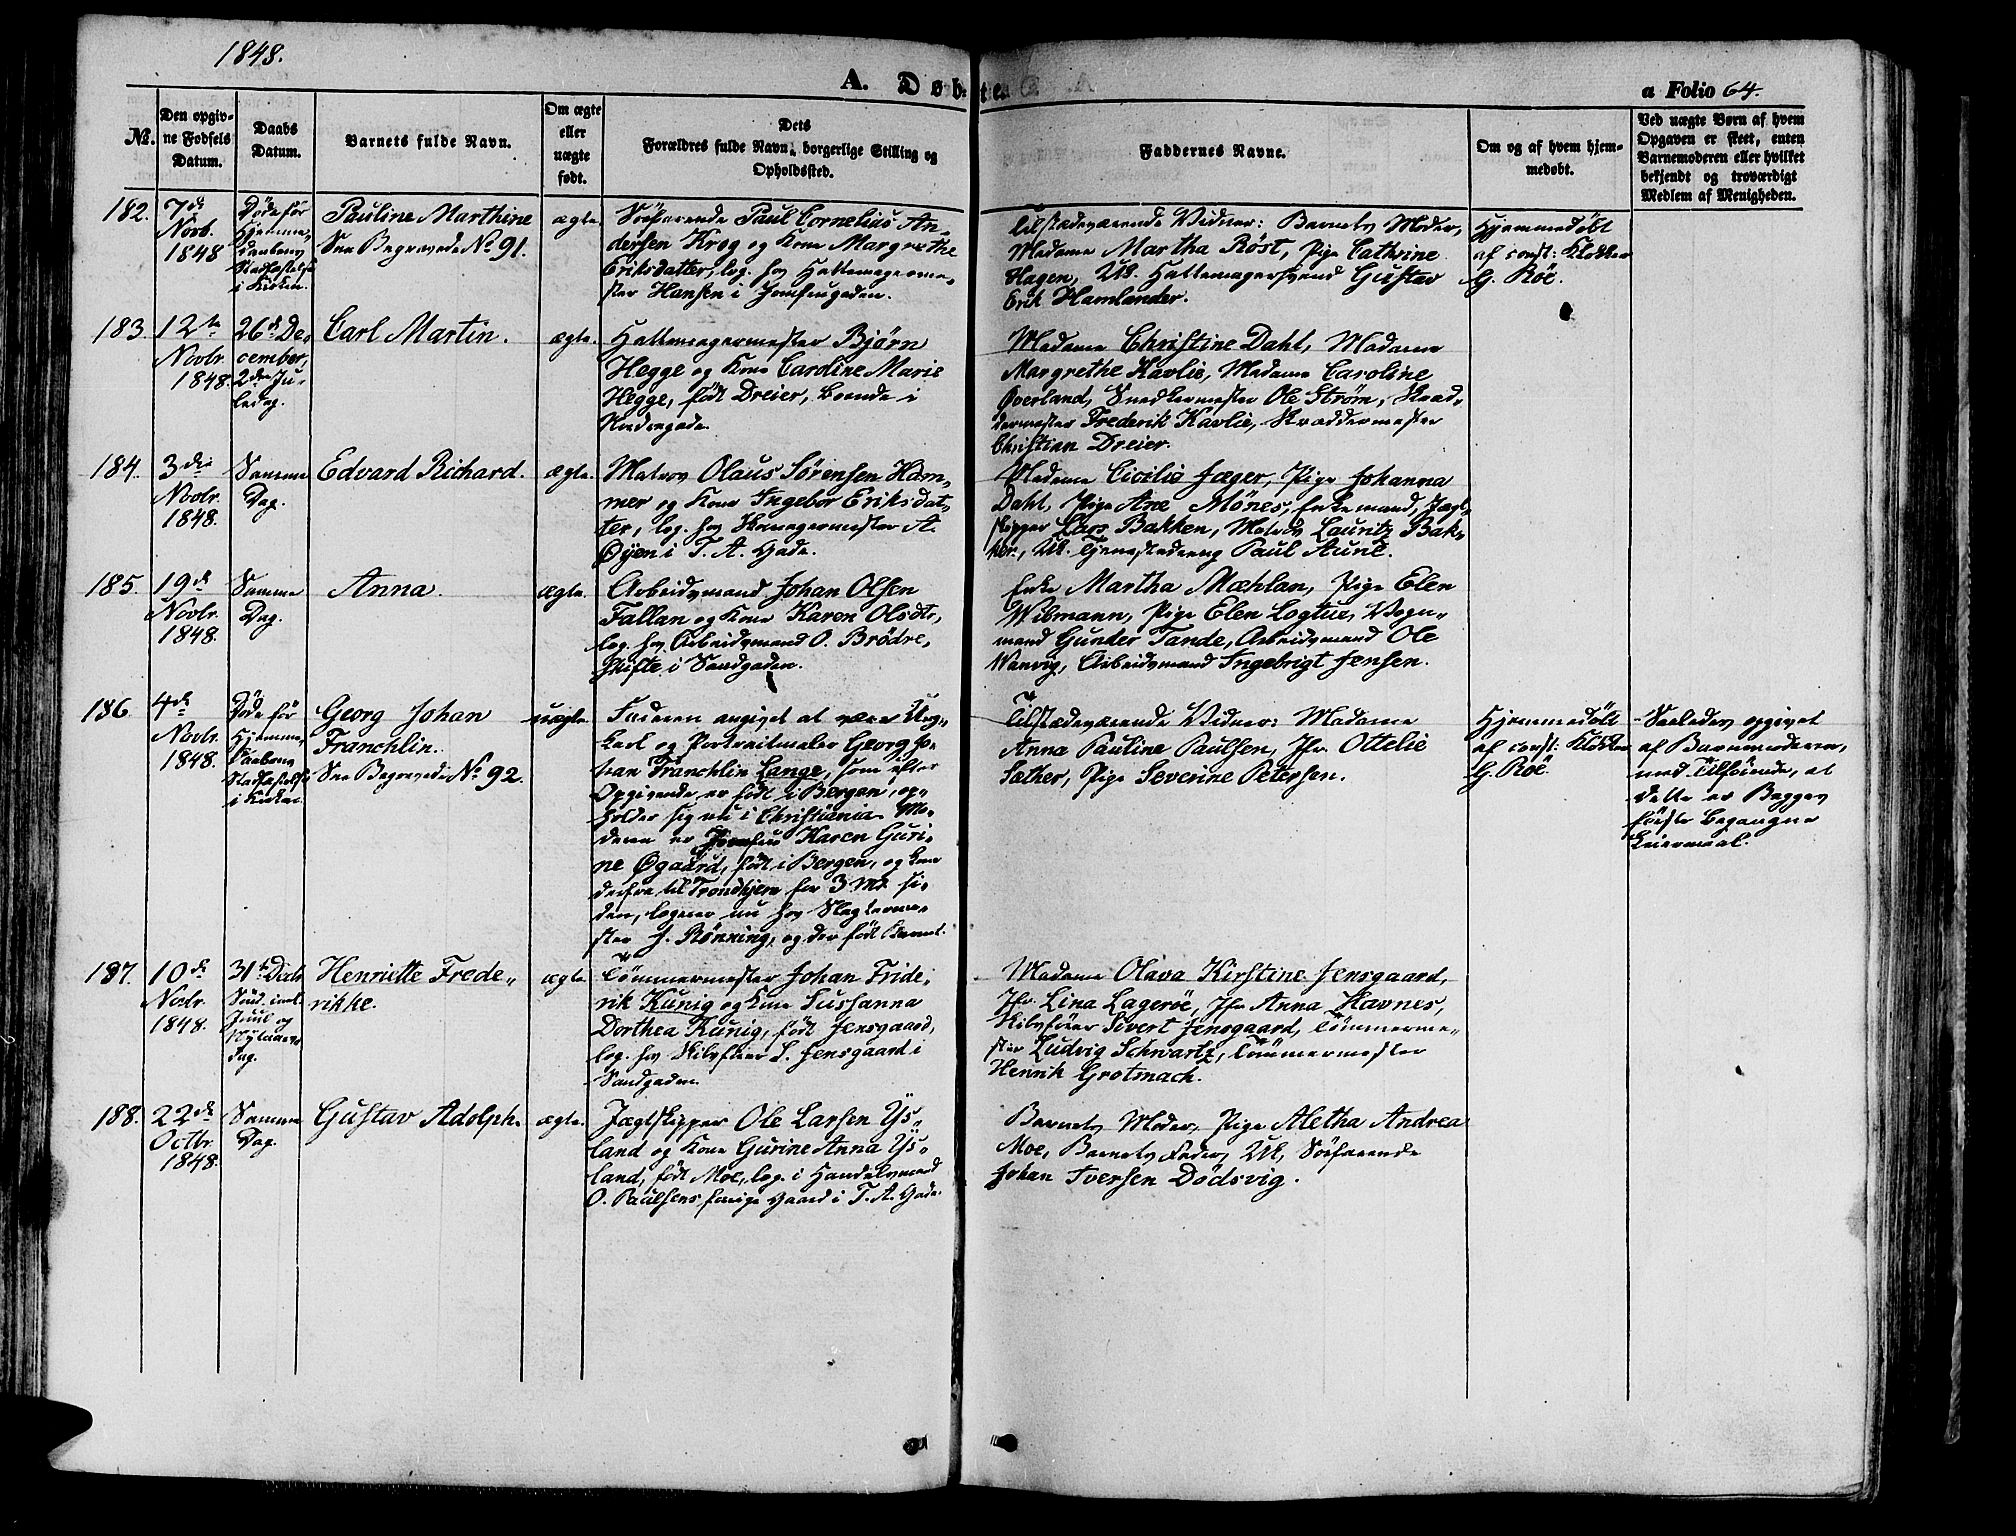 1848.
A. Døbte.
a Folio 64.
No.
Den opgiv-
ne Fødsels
Datum.
Daabs
Datum.
Barnets fulde Navn.
Om ægte
eller
uægte
født.
Dets
Forældres fulde Navn, borgerlige Stilling og
Opholdssted.
Faddernes Navne.
Om og af hvem hjem-
medøbt.
Ved uægte Børn af hvem
Opgaven er skeet, enten
Barnemoderen eller hvilket
bekjendt og troværdigt
Medlem af Menigheden.
182.
7de
Novb.
1848
Døde før
Hjemme-
daabens
Stadfæstelse
i Kirken.
Pauline Marthine
See Begravede No. 91.
ægte.
Söefarende Paul Cornelius An-
dersen Krog og Kone Margrethe
Eriksdatter, log. hos Hattemagerme-
ster Hansen i Jomfrugaden.
Tilstædeværende Vidner: Barnets Moder,
Madame Martha Röst, Pige Cathrine
Hagen, Uk. Hattemagersvend Gustav
Erik Hamlander.
Hjemmedöbt
af const: Klokker
G. Röe.
183.
12te
Novbr.
1848.
26de De-
cember,
2den Ju-
ledag.
Carl Martin.
ægte.
Hattemagermester Bjørn
Hegge og Kone Caroline Marie
Hegge, født Dreier, boende i
Nordregade.
Madame Christine Dahl, Madame
Margrethe Havlie, Madame Caroline
Øverland, Snedkermester Ole Strøm, Skræd-
dermester Frederik Kavlie, Skræddermester
Christian Dreier.
184.
3die
Novbr.
1848.
Samme
Dag.
Edvard Richard.
ægte.
Matros Olaus Sørensen Ham-
mer og Kone Ingebor Eriksdat-
ter, log. hos Skomagermester A.
Øyen i T. A. Gade.
Madame Cicilie Jæger, Pige Johanna
Dahl, Pige Ane Mönes, Enkemand, Jægt-
skipper Lars Bakken, Matros Lauritz Bak-
ken, Uk. Tjenestedreng Paul Aune.
185.
19de
Novbr.
1848.
Samme
Dag.
Anna.
ægte.
Arbeidsmand Johan Olsen
Fallan og Kone Karen Olsdtr,
log. hos Arbeidsmand O. Brödre-
skifte i Sandgaden.
Enke Martha Mæhlan, Pige Elen
Wibmann, Pige Elen Logtue, Vogn-
mand Gunder Tande, Arbeidsmand Ole
Wanvig, Arbeidsmand Ingebrigt Jensen.
186.
4de
Novbr.
1848.
Döde før
Hjemme-
Daabens
Stadfæstelse
i Kirken
Georg Johan
Franchlin.
See Begravede No. 92.
uægte.
Faderen angivet at være Ung-
karl og Portraitmaler Georg Jo-
han Franchlin Lange, som efter
Opgivende er født i Bergen, op-
holder sig nu i Christiania. Mo-
deren er Jomfru Karen Guri-
ne Øgaard, født i Bergen, og kom
derfra til Trondhjem for 3 Mdr si-
den, logerer nu hos Slagterme-
ster J. Rönning, og der født Barnet.
Tilstædeværende Vidner: Madame
Anna Pauline Paulsen, Jfr. Ottelie
Sæther, Pige Severine Petersen.
Hjemmedöbt
af const: Klokker
G. Röe.
Saaledes opgivet
af Barnemoderen,
med Tilföiende, at
dette er Begges
förste begangne
Leiermaal.
187.
10de
Novbr.
1848.
31te Decbr
Sönd. imel.
Juul og
Nytaars-
dag.
Henriette Frede-
rikke.
ægte
Tömmermester Johan Fride-
rik Kunig og Kone Sussanna
Dorthea Kunig, født Jensgaard,
log. hos Skibsfører L. Jensgaard i
Sandgaden.
Madame Olava Kirstine Jensgaard,
Jfr. Lina Lageröe, Jfr Anna Havnes,
Skibsfører Sivert Jensgaard, Tömmerme-
ster Ludvig Schwartz, Tömmermester
Henrik Grotmach.
188.
22de
Octbr
1848.
Samme
Dag.
Gustav Adolph.
ægte.
Jægtskipper Ole Larsen Ys-
land og Kone Gurine Anna Ys-
land, født Moe, log. i Handelsmand
O. Paulsens forrige Gaard i T. A. Gade.
Barnets Moder, Pige Aletha Andrea
Moe, Barnets Fader, Uk. Söefarende
Johan Iversen Dödsvig.